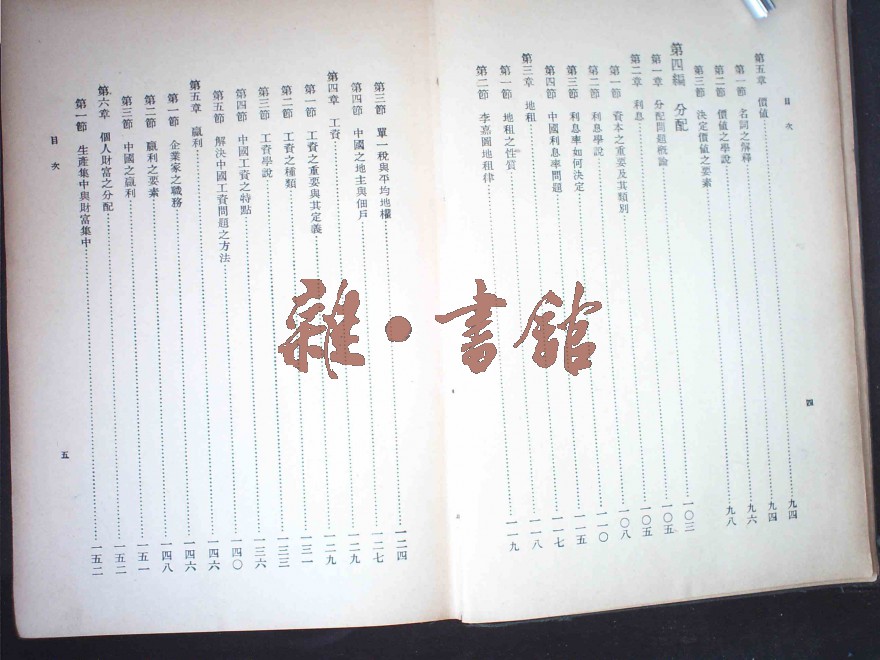 目次
第五章 價値……九四
第一節 名詞之解釋……九四
第二節 價値之學說……九六
第三節 決定價値之要素……九八
第四編 分配
第一章 分配問題概論……一〇三
第二章 利息……一〇五
第一節 資本之重要及其類別……一〇五
第二節 利息學說……一〇八
第三節 利息率如何決定……一一〇
第四節 中國利息率問題……一一五
第三章 地租……一一七
第一節 地租之性質……一一八
第二節 李嘉圖地租律……一一九
四
第三節 單一稅與平均地權……一二四
第四節 中國之地主與佃戶……一二七
第四章 工資……一二九
第一節 工資之重要與其定義……一二九
第二節 工資之種類……一三一
第三節 工資學說……一三三
第四節 中國工資之特點……一三六
第五節 解決中國工資問題之方法……一四〇
第五章 贏利……一四六
第一節 企業家之職務……一四六
第二節 贏利之要素……一四八
第三節 中國之贏利……一五一
第六章 個人財富之分配……一五二
第一節 生產集中與財富集中……一五二
目次
五
雜·書館